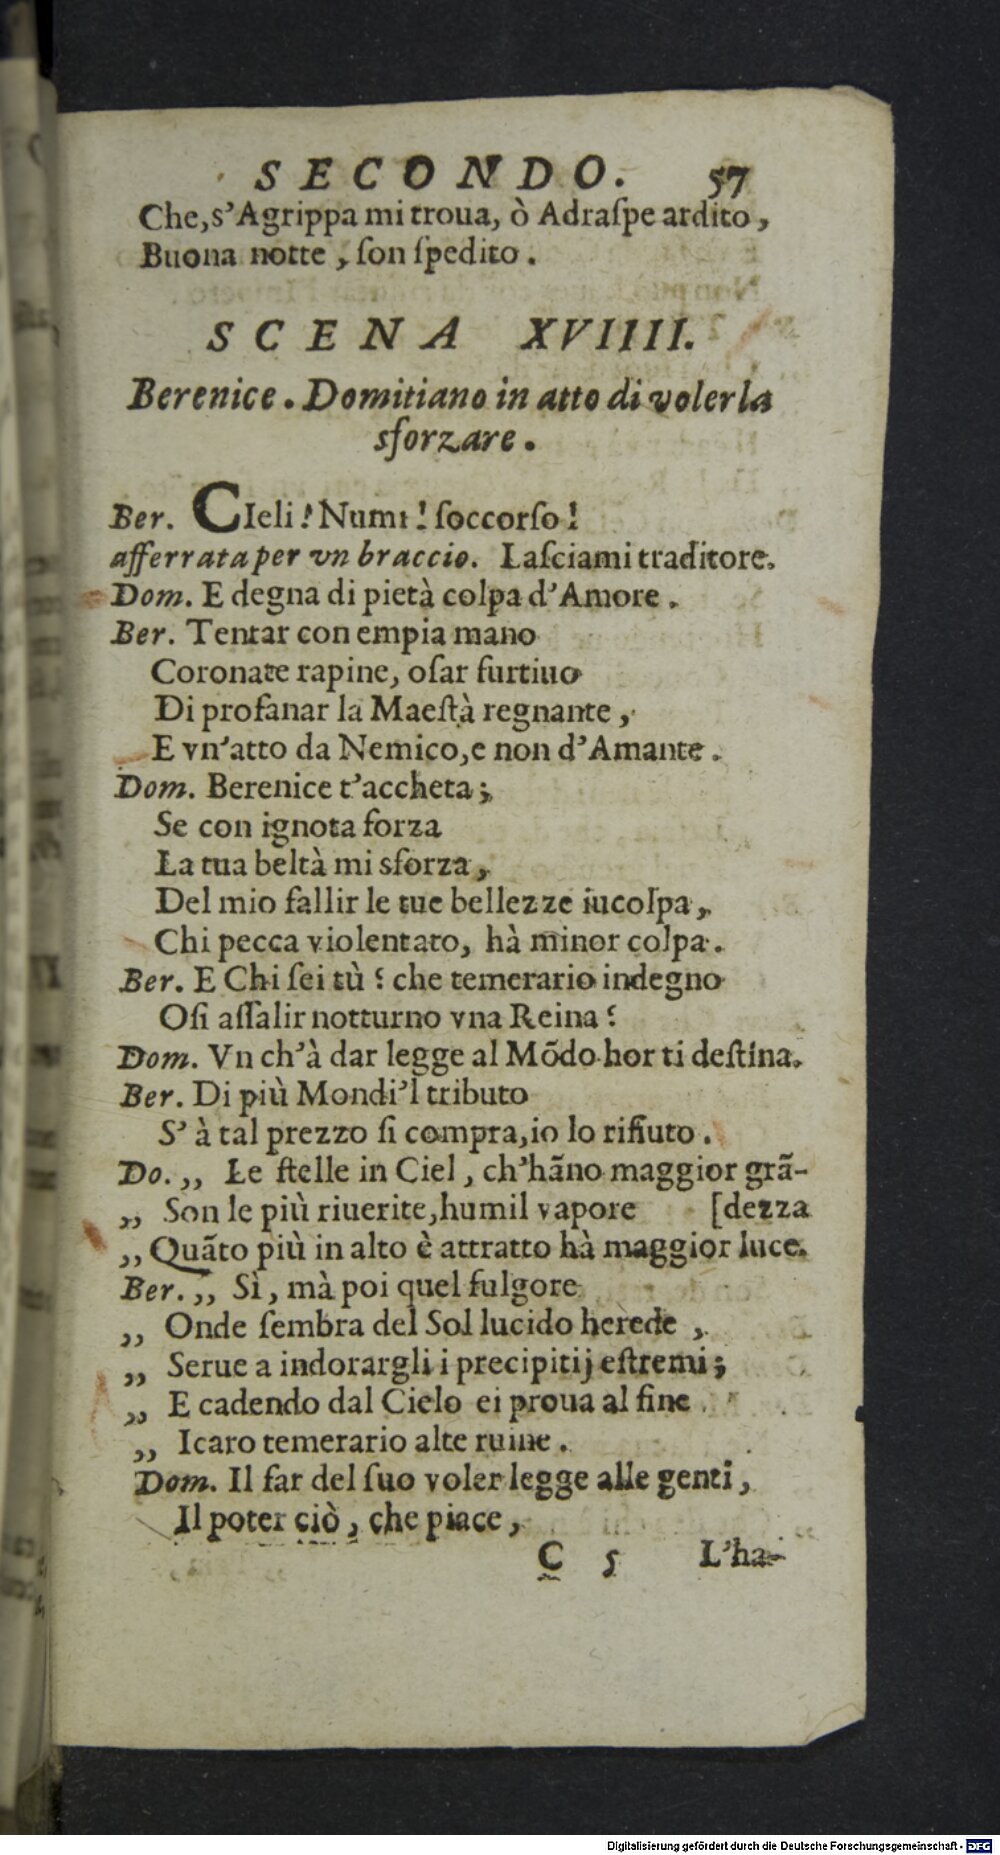 SECONDO. 57
Che, s'Agrippa mi troua, ò Adraſpe ardito,
Buona notte, ſon ſpedito.
SCENA XVIIII.
Berenice. Domitiano in atto di volerla
sforzare.
Ber. CIeli! Numi! ſoccorſo!
afferrata per vn braccio. Laſciami traditore.
Dom. E degna di pietà colpa d'Amore.
Ber. Tentar con empia mano
Coronate rapine, oſar furtiuo
Di profanar la Maeſtà regnante,
E vn'atto da Nemico, e non d'Amante.
Dom. Berenice t'accheta;
Se con ignota forza
La tua beltà mi sforza,
Del mio fallir le tue bellezze iucolpa,
Chi pecca violentato, hà minor colpa.
Ber. E Chi ſei tù? che temerario indegno
Oſi aſſalir notturno vna Reina?
Dom. Vn ch'à dar legge al Mōdo hor ti deſtina.
Ber. Di più Mondi'l tributo
S' à tal prezzo ſi compra, io lo rifiuto.
Do. „ Le ſtelle in Ciel, ch'hãno maggior grã-
„ Son le più riuerite, humil vapore [dezza
„ Quãto più in alto è attratto hà maggior luce.
Ber. „ Sì, mà poi quel fulgore
„ Onde ſembra del Sol lucido herède,
„ Serue a indorargli i precipitij eſtremi;
„ E cadendo dal Cielo ei proua al fine
„ Icaro temerario alte ruine.
Dom. Il far del ſuo voler legge alle genti,
Il poter ciò, che piace,
C 5 L'ha-
Digitalisierung gefördert durch die Deutsche Forschungsgemeinschaft - DFG